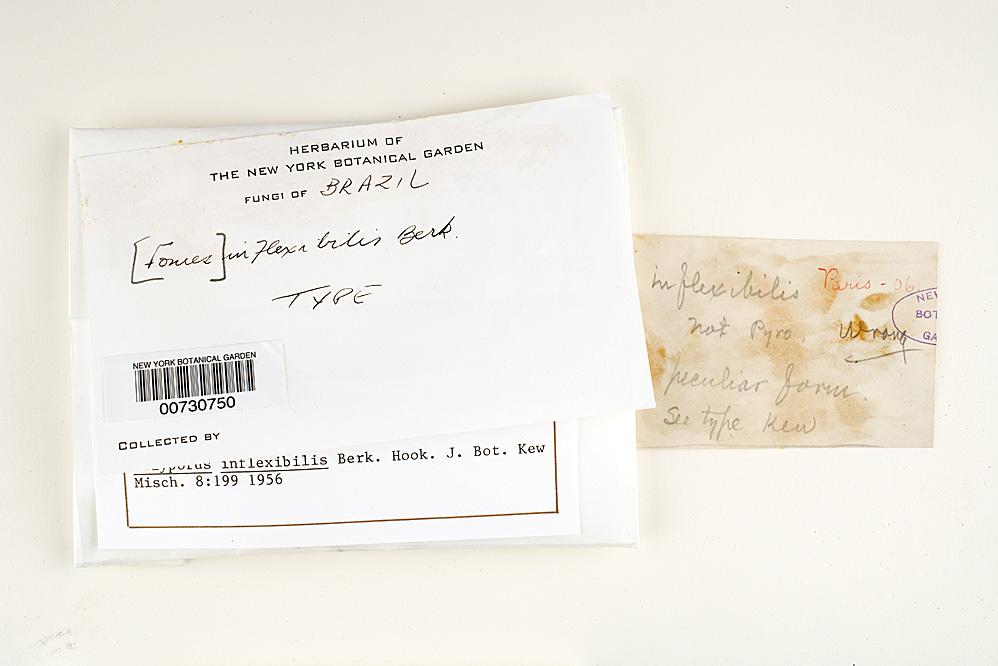 HERBARIUM OF
THE NEW YORK BOTANICAL GARDEN
FUNGI OF BRAZIL
[Fomes] inflexibilis Berk.
TYPE
NEW YORK BOTANICAL GARDEN
00730750
COLLECTED BY
inflexibilis Berk. Hook. J. Bot. Kew
Misch. 8:199 1956
inflexibilis Paris - 06.
not Pyro. Wrong
peculiar form.
See type Kew
NEW
BOT
GA